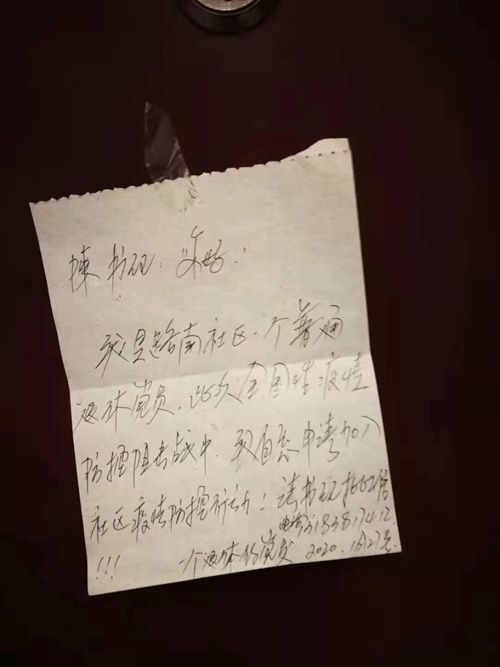 陈书记:安好:
我是路南社区一个普通
退休党员,此次全国性疫情
防控阻击战中,我自愿申请加入
社区疫情防控行动!请书记批准
电话
!!! 一个退休的党员 2020.1月27日